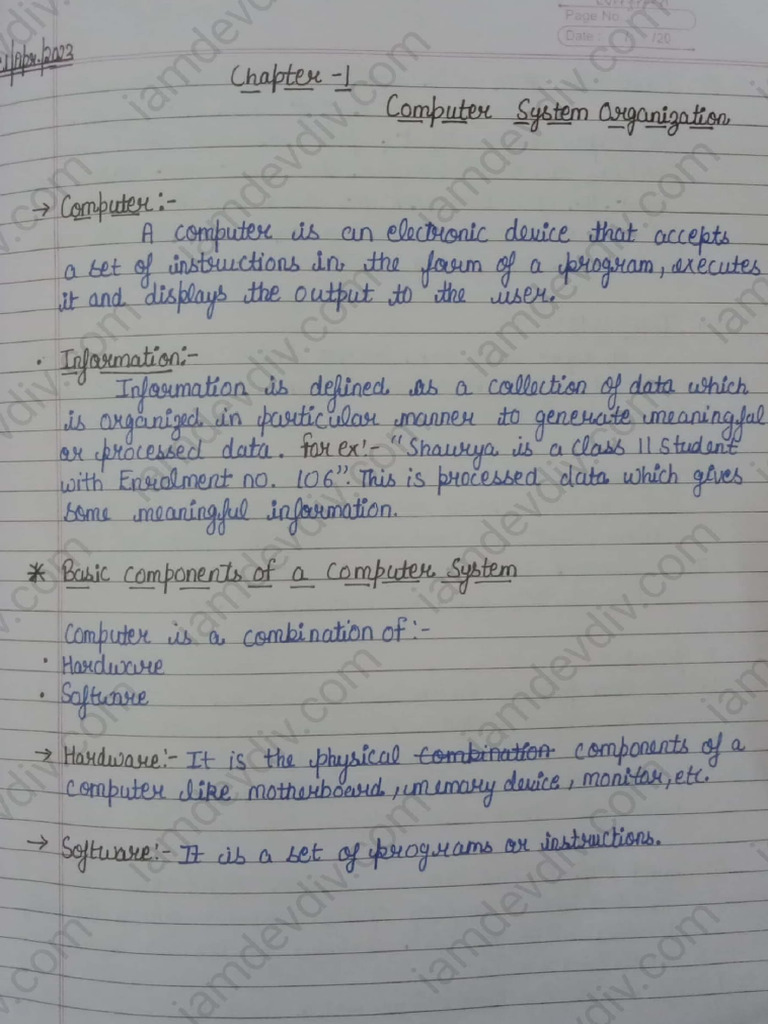 Page No.
Date : / /20
/Apr.2023
Chapter -1
Computer System Organization
→ Computer:-
A computer is an electronic device that accepts
a set of instructions in the form of a program, executes
it and displays the output to the user.
· Information:-
Information is defined as a collection of data which
is organized in particular manner to generate meaningful
or processed data. For ex:- "Shaurya is a Class 11 Student
with Enrolment no. 106". This is processed data which gives
some meaningful information.
* Basic components of a Computer System
Computer is a combination of:-
· Hardware
· Software
→ Hardware:- It is the physical combination components of a
computer like motherboard, memory device, monitor, etc.
→ Software:- It is a set of programs or instructions.
iamdevdiv.com